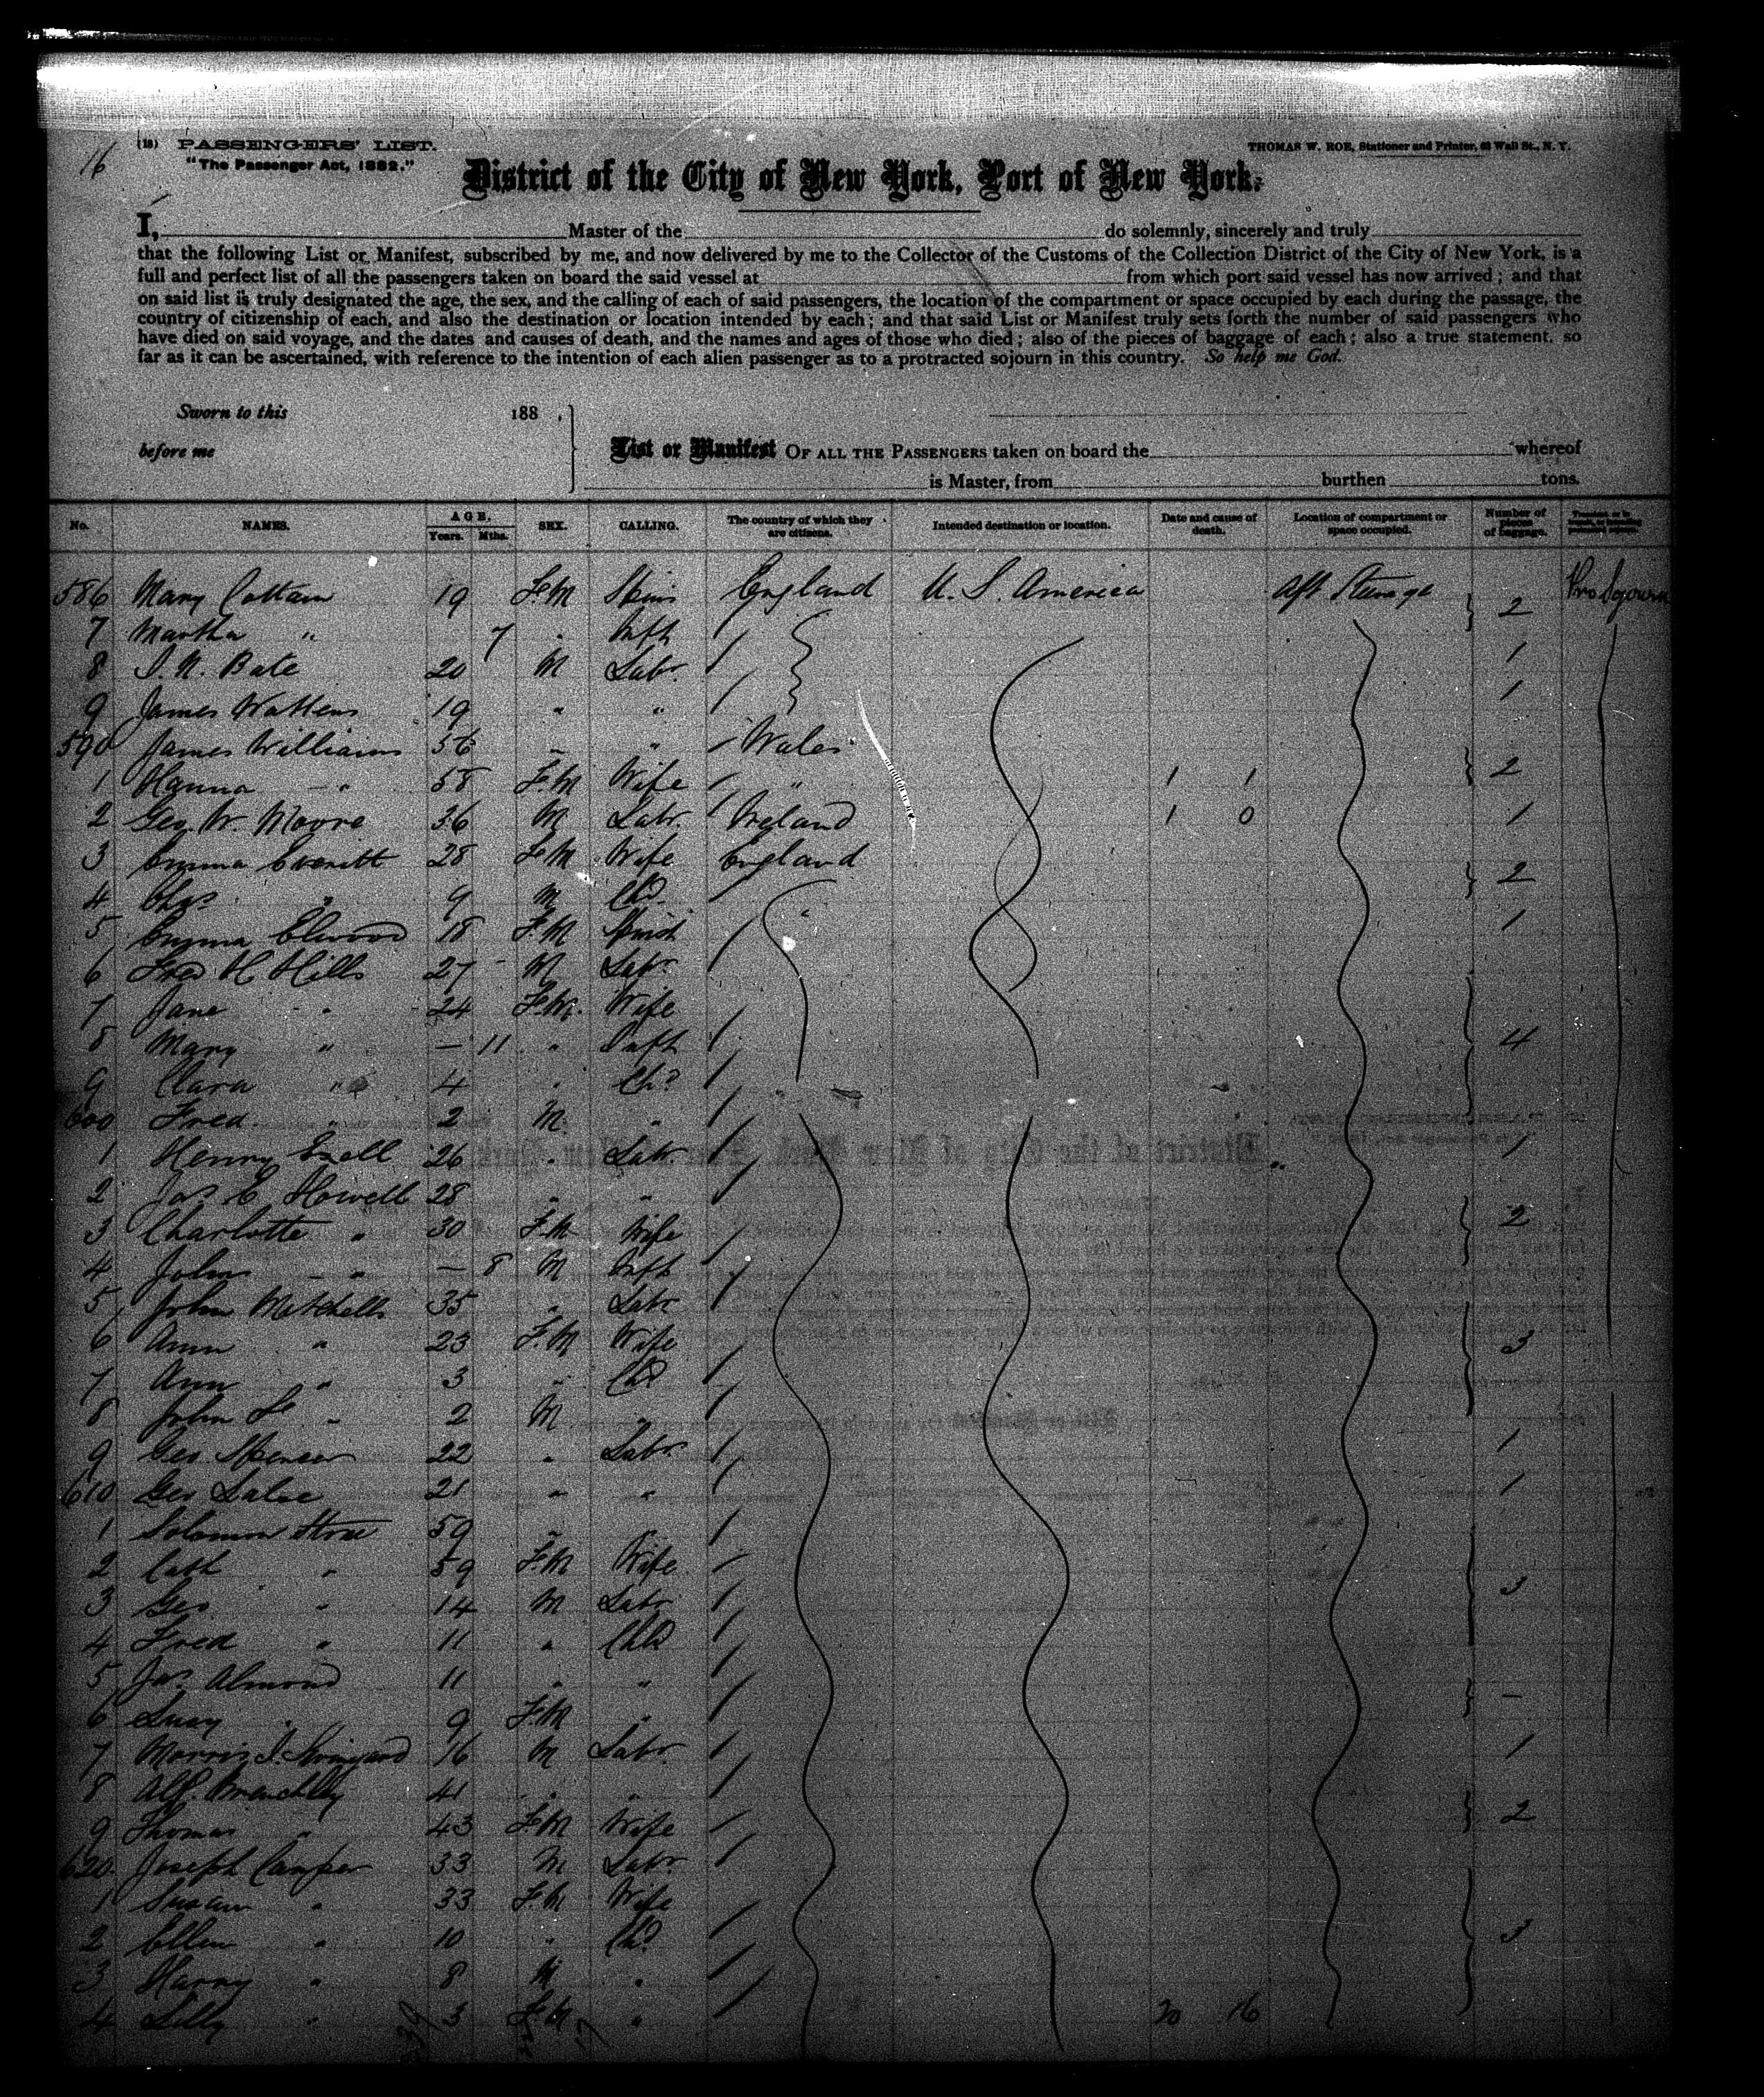 16
(18) PASSENGERS' LIST.
"The Passenger Act, 1882."
THOMAS W. ROE, Stationer and Printer, 62 Wall St., N. Y.
District of the City of New York, Port of New York.
I, Master of the do solemnly, sincerely and truly
that the following List or Manifest, subscribed by me, and now delivered by me to the Collector of the Customs of the Collection District of the City of New York, is a
full and perfect list of all the passengers taken on board the said vessel at from which port said vessel has now arrived; and that
on said list is truly designated the age, the sex, and the calling of each of said passengers, the location of the compartment or space occupied by each during the passage, the
country of citizenship of each, and also the destination or location intended by each; and that said List or Manifest truly sets forth the number of said passengers who
have died on said voyage, and the dates and causes of death, and the names and ages of those who died; also of the pieces of baggage of each; also a true statement, so
far as it can be ascertained, with reference to the intention of each alien passenger as to a protracted sojourn in this country. So help me God.
Sworn to this 188 .
before me
List or Manifest OF ALL THE PASSENGERS taken on board the whereof
is Master, from burthen tons.
No. NAMES. AGE. Years. Mths. SEX. CALLING. The country of which they are citizens. Intended destination or location. Date and cause of death. Location of compartment or space occupied. Number of pieces of baggage.
586 Mary Cottam 19 F.M Spins England U. S. America Aft Steerage 2
7 Martha " 7 " Inft
8 J. N. Bate 20 M Labr. 1
9 James 19 " " 1
590 James Williams 56 " " Wales
1 Hanna " 58 F.M Wife " 1 1 2
2 Geo. W. Moore 36 M Labr. Ireland 1 0 1
3 Emma Everitt 28 F.M Wife England
4 Chas " 9 M Chd " 2
5 Emma Elwood 18 F.M Spinst 1
6 Fred H Hills 27 M Labr.
7 Jane " 24 F.M. Wife
8 Mary " — 11 " Inft 4
9 Clara " 4 " Chd
600 Fred " 2 M. "
1 Henry Ezell 26 " Labr. 1
2 Jas E Howell 28 " "
3 Charlotte " 30 F.M Wife 2
4 John " — 8 M Inft
5 John Mitchells 35 " Labr
6 Ann " 23 F.M Wife 3
7 Ann " 3 " Chd
8 John " 2 M "
9 Geo. Spencer 22 " Labr. 1
610 Geo 21 " " 1
1 Solomon Stone 59 " "
2 Cath " 59 F.M Wife
3 Geo " 14 M Labr 3
4 Fred " 11 " Chd
5 Jas Almond 11 " "
6 Lucy " 9 F.M " —
7 Morris J. 16 M Labr. 1
8 Alf. Branchley 41 " "
9 Thomas " 43 F.M Wife 2
620 Joseph Camper 33 M Labr.
1 Susan " 33 F.M Wife
2 Ellen " 10 " Chd 3
3 Harry " 8 M "
4 Lilly " 3 F.M " 20 16